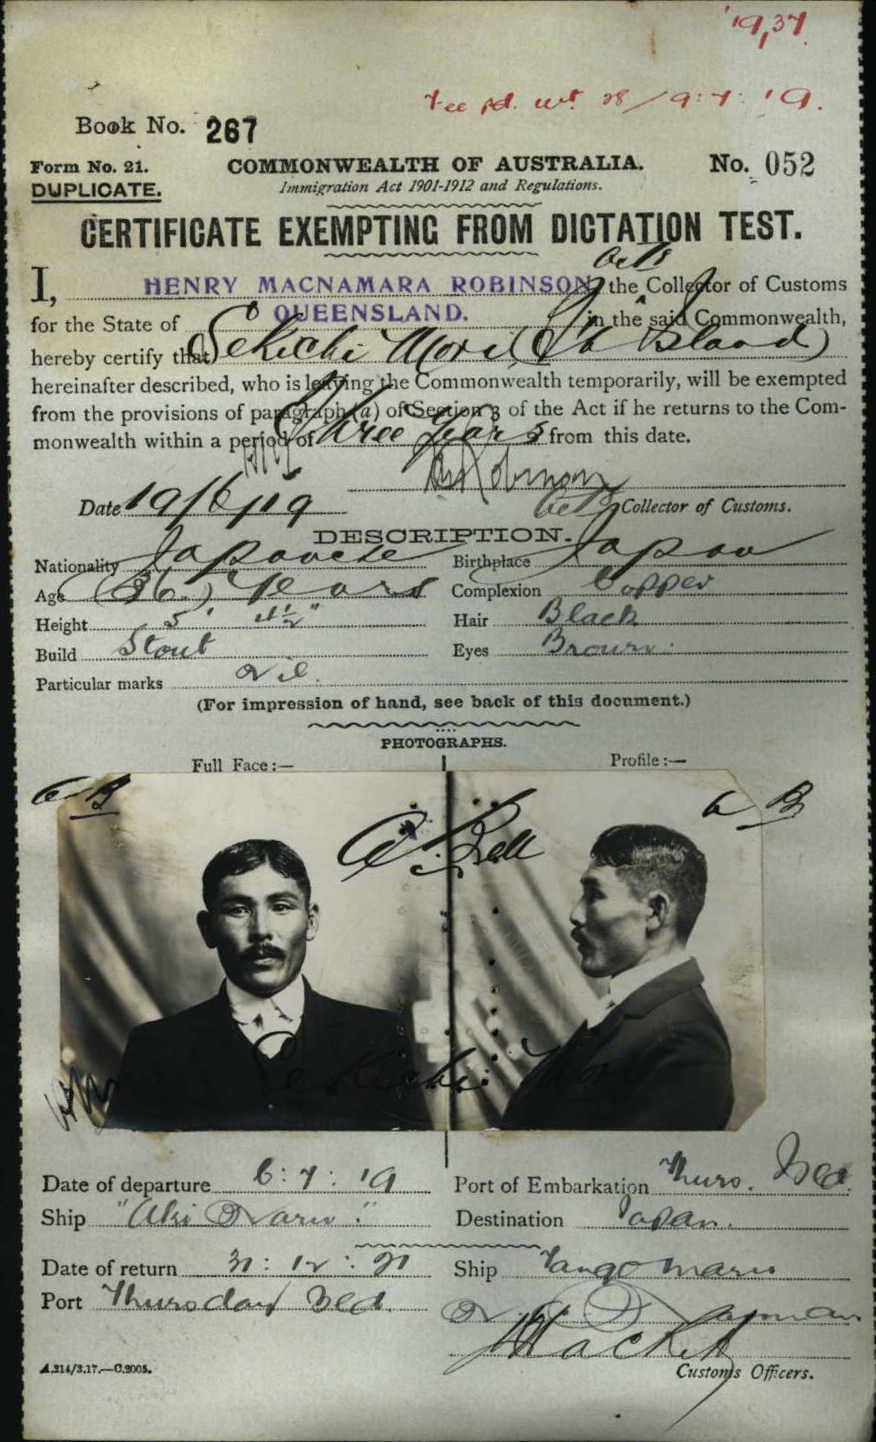 '19,37.
Fee pd. 28/9.7.'19.
Book No. 267
Form No. 21. COMMONWEALTH OF AUSTRALIA. No. 052
DUPLICATE. Immigration Act 1901-1912 and Regulations.
CERTIFICATE EXEMPTING FROM DICTATION TEST.
I, HENRY MACNAMARA ROBINSON, the Collector of Customs
for the State of QUEENSLAND. in the said Commonwealth,
hereby certify that Sekichi Mori (Th Island)
hereinafter described, who is leaving the Commonwealth temporarily, will be exempted
from the provisions of paragraph (a) of Section 3 of the Act if he returns to the Com-
monwealth within a period of Three Years from this date.
Date 19/6/19 Collector of Customs.
DESCRIPTION.
Nationality Japanese Birthplace Japan
Age (36) Years Complexion Copper
Height 5' 4½" Hair Black
Build Stout Eyes Brown.
Particular marks Nil.
(For impression of hand, see back of this document.)
PHOTOGRAPHS.
Full Face:— Profile:—
Sekichi Mori
Date of departure 6:7:'19 Port of Embarkation Thurs. Isld.
Ship "Aki Maru." Destination Japan.
Date of return 31:12:21 Ship Tango Maru
Port Thursday Isld.
Customs Officers.
A.214/3.17.—C.2005.